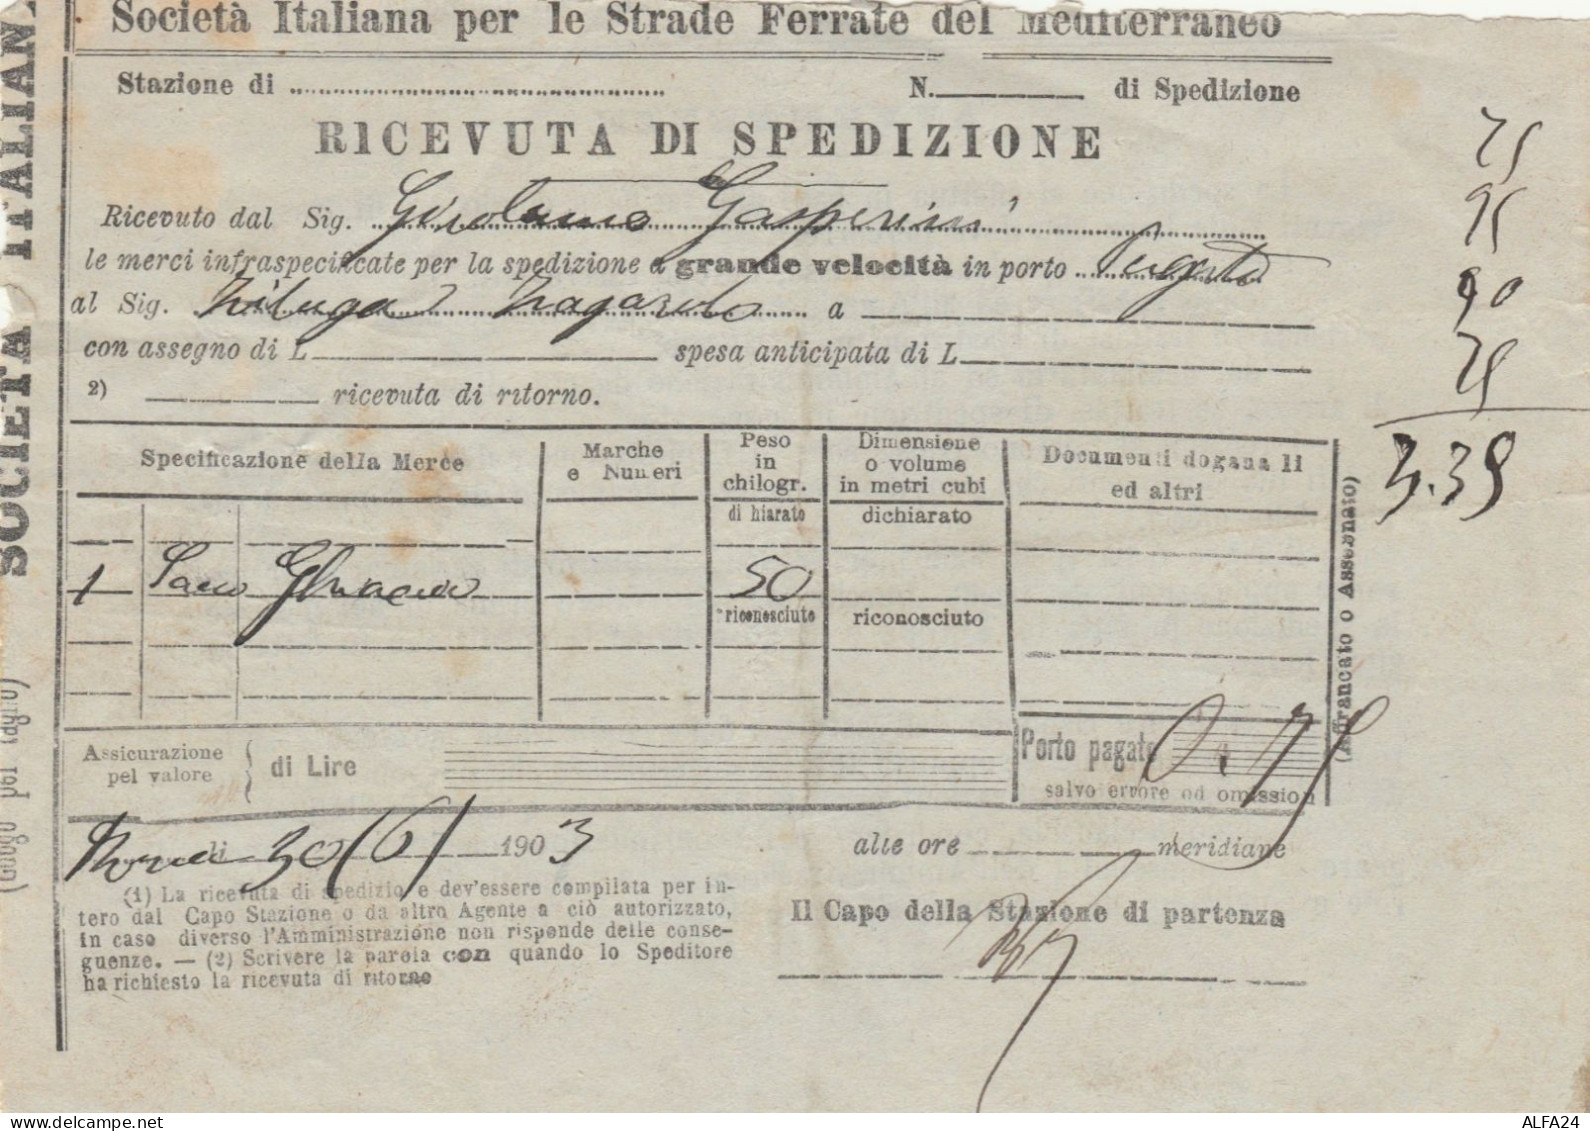 Società Italiana per le Strade Ferrate del Mediterraneo
Stazione di
N. di Spedizione
RICEVUTA DI SPEDIZIONE
Ricevuto dal Sig. Girolamo Gasperini
le merci infraspecificate per la spedizione a grande velocità in porto
al Sig. a
con assegno di L spesa anticipata di L
2) ricevuta di ritorno.
75
95
90
75
3.35
Specificazione della Merce
Marche e Numeri
Peso in chilogr.
Dimensione o volume in metri cubi
Documenti doganali ed altri
di hiarato
dichiarato
1 Sacco Ghiaccio 50
riconosciuto
riconosciuto
(Affrancato o Assegnato)
Assicurazione pel valore
di Lire
Porto pagato 0.75
salvo errore od omissione
Roma li 30/6/ 1903
alle ore meridiane
(1) La ricevuta di spedizione dev'essere compilata per in-
tero dal Capo Stazione o da altro Agente a ciò autorizzato,
in caso diverso l'Amministrazione non risponde delle conse-
guenze. — (2) Scrivere la parola con quando lo Speditore
ha richiesto la ricevuta di ritorno
Il Capo della Stazione di partenza
SOCIETÀ ITALIANA
(Luogo pel bagno)
www.delcampe.net
ALFA24